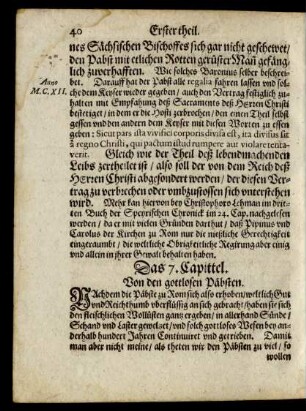 40 Erster theil.
nes Sächsischen Bischoffes sich gar nicht geschewet/
den Pabst mit etlichen Rotten gerüster Mañ gefäng-
lich zuverhafften. Wie solches Baronius selber beschrei-
bet. Darauff hat der Pabst alle regalia fahren lassen vnd sol-
Anno
M.C.XII.
che dem Keyser wieder gegeben / auch den Vertrag festiglich zu-
halten mit Empfahung deß Sacraments deß HErren Christi
bestetiget / in dem er die Hosti zerbrochen / den einen Theil selbst
gessen vnd den andern dem Keyser mit diesen Worten zu essen
geben: Sicut pars ista vivifici corporis divisa est, ita divisus sit
à regno Christi, qui pactum istud rumpere aut violare tenta-
verit. Gleich wie der Theil deß lebendmachenden
Leibs zertheilet ist / also soll der von dem Reich deß
HErren Christi abgesondert werden / der diesen Ver-
trag zu verbrechen oder vmbzustossen sich vnterstehen
wird. Mehr kan hiervon bey Christophoro Lehman im drit-
ten Buch der Speyrischen Chronick im 24. Cap. nachgelesen
werden / da er mit vielen Gründen darthut / daß Pipinus vnd
Carolus der Kirchen zu Rom nur die nießliche Gerechtigkeit
eingeraumbt / die weltliche Obrigkeitliche Regirung aber einig
vnd allein in ihrer Gewalt behalten haben.
Das 7. Capittel.
Von den gottlosen Päbsten.
NAchdem die Päbste zu Rom sich also erhoben / weltlich Gut
vnd Reichthumb vberflüssig an sich gebracht / haben sie sich
den fleischlichen Wollüsten gantz ergeben / in allerhand Sünde /
Schand vnd Laster geweltzet / vnd solch gottloses Wesen bey an-
derhalb hundert Jahren Continuiret vnd getrieben. Damit
man aber nicht meine / als theten wir den Päbsten zu viel / so
wollen